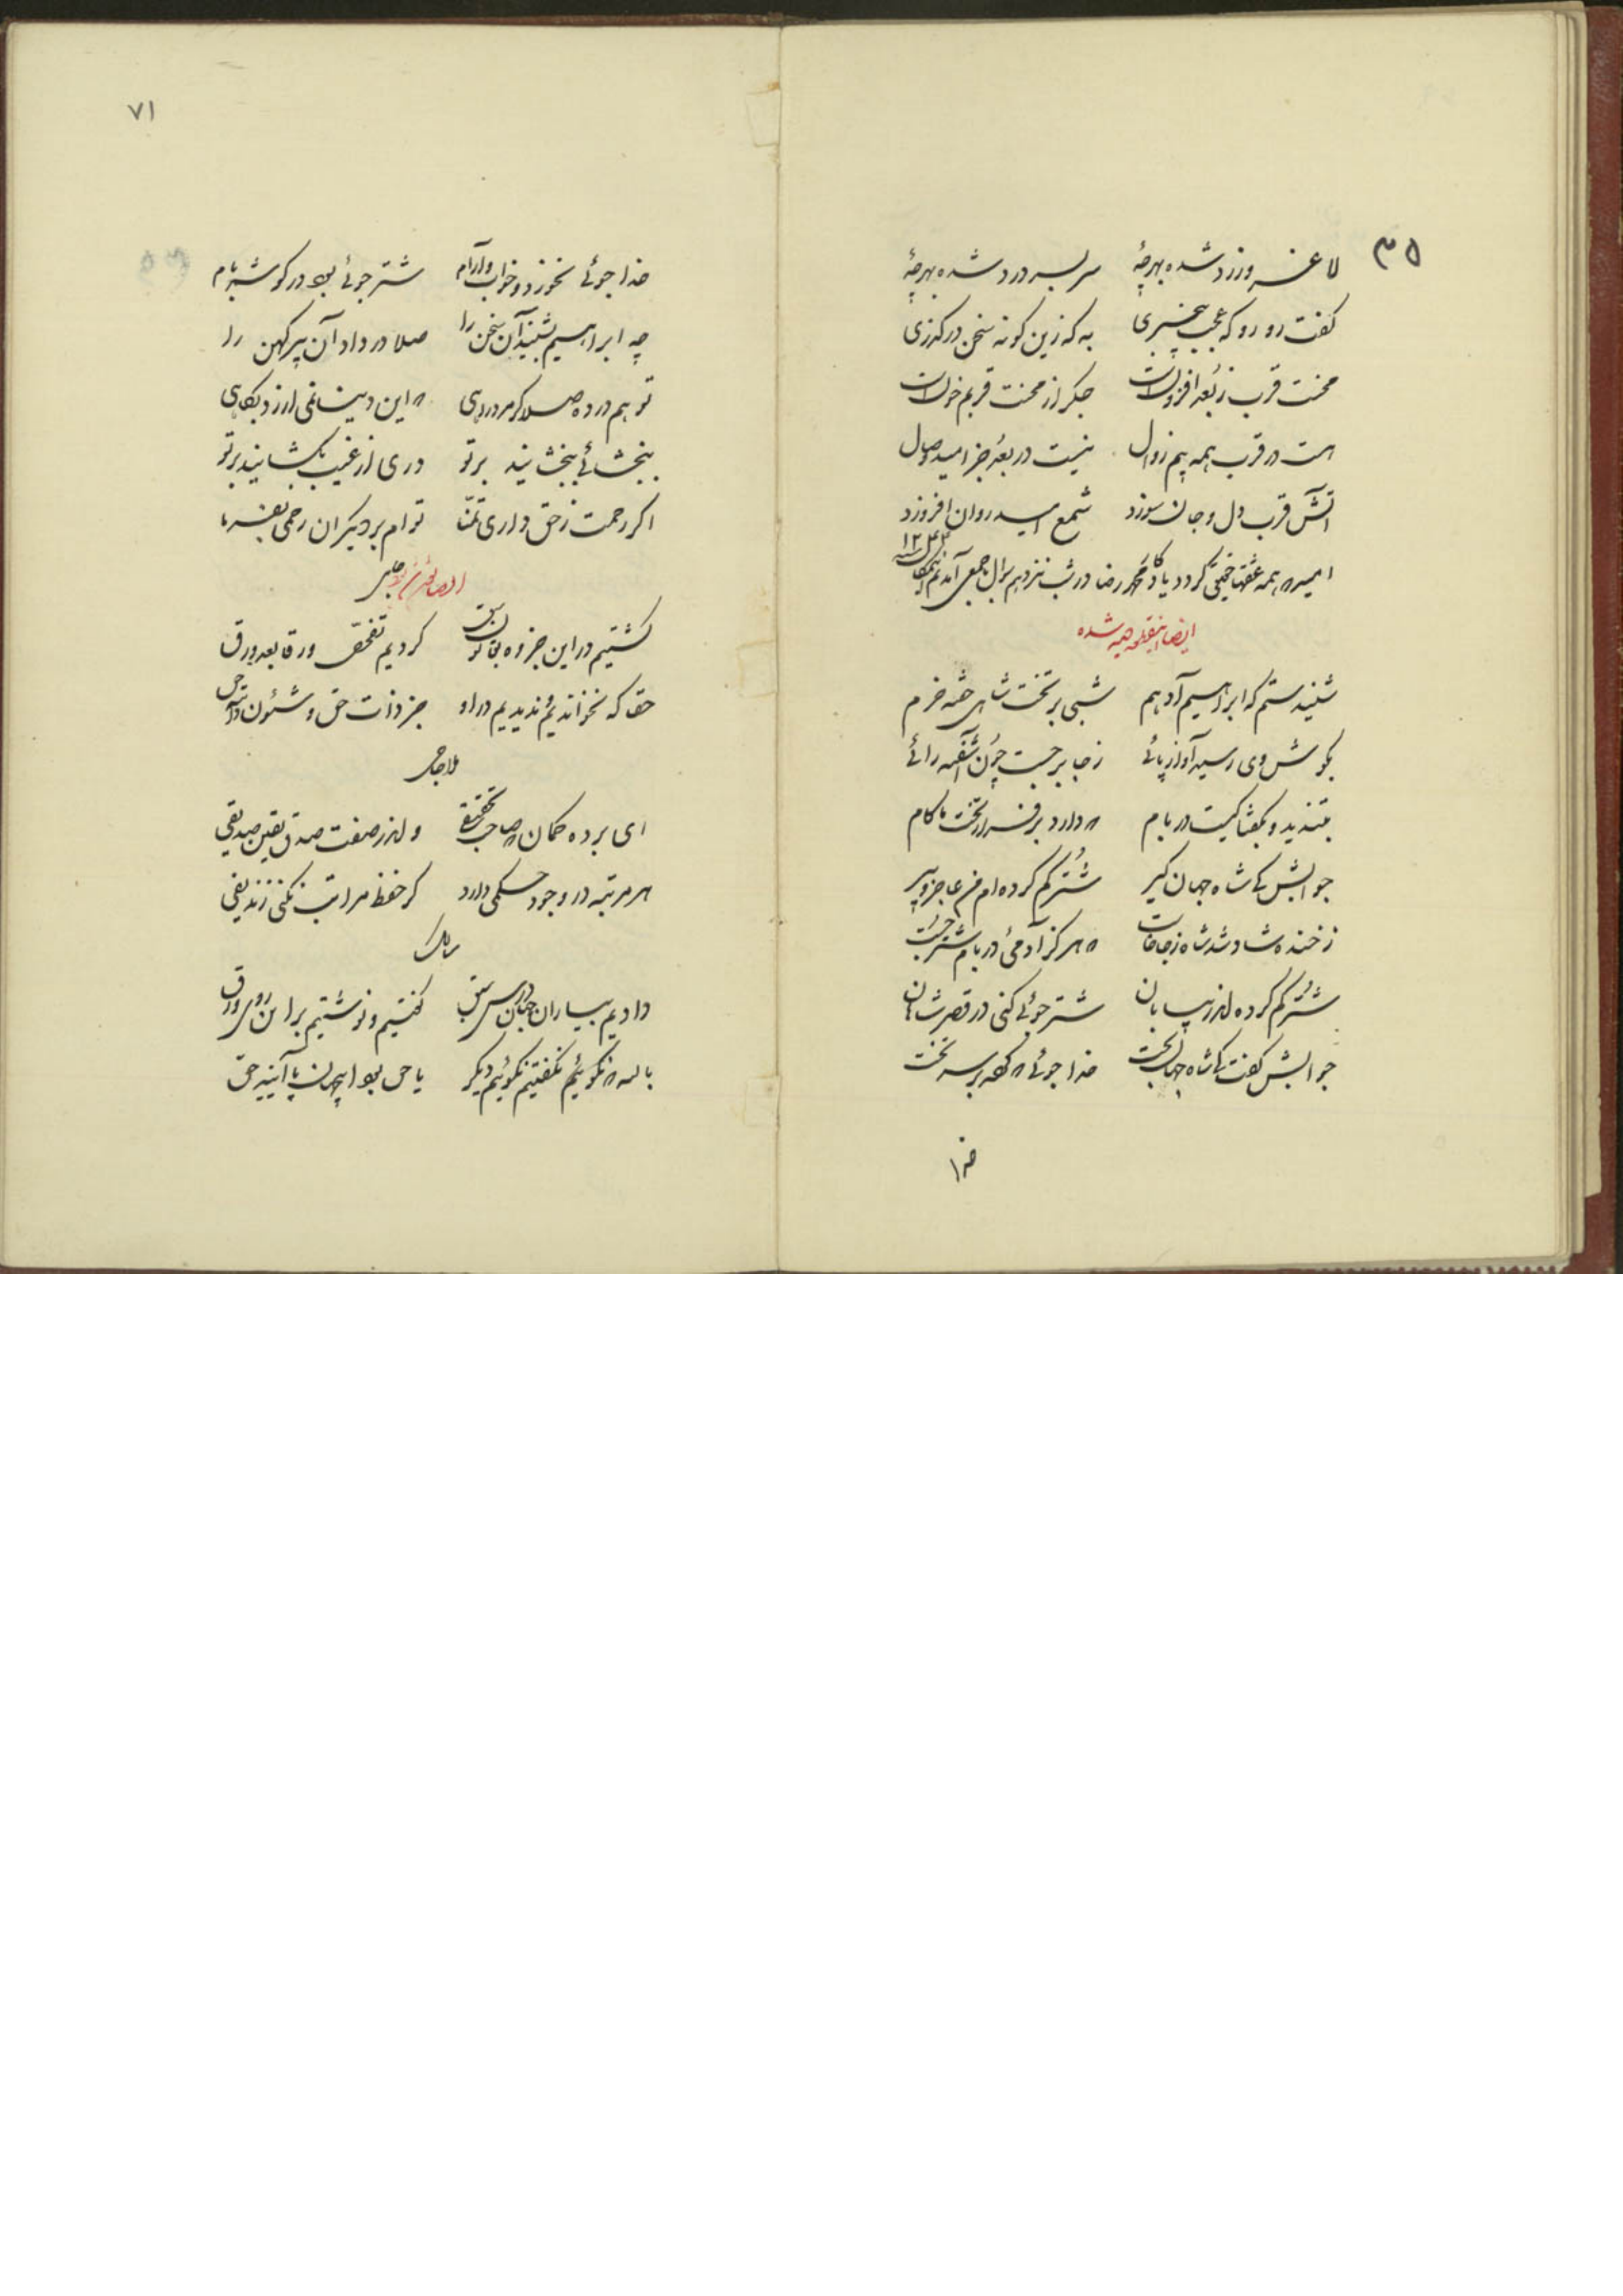 ۳۵
لاغر و زرد شده بهر چهٔ سر بسر درد شده بهر چهٔ
گفت رو رو که عجب بیخبری به که زین گونه سخن درگذری
محنت قرب ز بُعد افزونست جگر از محنت قربم خونست
هست در قرب همه بیم زوال نیست در بُعد جز امید وصال
آتش قرب دل و جان سوزد شمع امید روان افروزد
امید همه عشقها حقیقی گردد یادگار محمد رضا در شب نزدهم شوال
ایضا شده
شنیدستم که ابراهیم ادهم شبی بر تخت شاهی خفته خرم
بگوش وی رسید آواز پائی ز جا برجست چون آشفته رائی
بتندید و بگفتا کیست در بام که دارد بر فراز تخت ما گام
جوابش کای شاه جهان گیر شتر گم کرده‌ام من عاجز و پیر
ز خنده شاد شد شاه ز جا خاست که هرگز آدمی در بام شتر جست
شتر گم کرده اندر بیابان شتر جوئی کنی در قصر شاهان
جوابش گفت کای شاه جهانبخت خدا جوئی که کرده بر سر تخت
خدا
۷۱
خدا جوئی نخورد و خواب و آرام شتر جوئی بود در گوشهٔ بام
چه ابراهیم بشنید آن سخن را صلا در داد آن پیر کهن را
تو هم در ده صلا گر مرد راهی که این دنیا نمی ارزد بکاهی
ببخشائی ببخشایند بر تو دری از غیب بگشایند بر تو
اگر رحمت ز حق داری تمنا تو ام بر دیگران رحمی بفرما
جامی
گشتیم در این جزوه بقانون سبق کردیم تفحّص ورقا بعد ورق
حقا که نخواندیم و ندیدیم در او جز ذات حق و شئون ذاتیه حق
لاجامی
ای برده گمان که صاحب تحقیقی و اندر صفت صدق یقین صدیقی
هر مرتبه در وجود حکمی دارد گر حفظ مراتب نکنی زندیقی
دادیم بیاران جهان درس سبق گفتیم و نوشتیم بر این روی ورق
بالله که نگوئیم نگفتیم نگوئیم دیگر یا حق بود این جهان یا آیینه حق